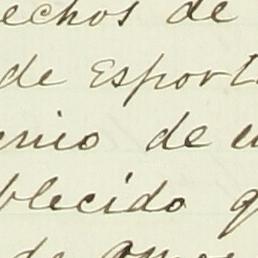 echos de
de Esport
enio de e
blecido q
de